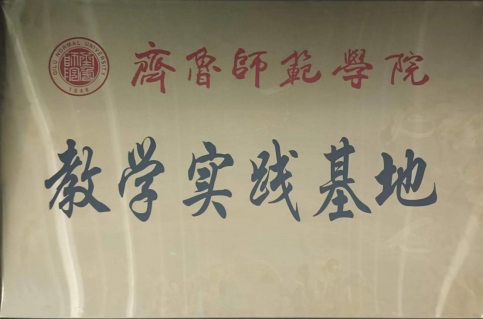 齊魯師範學院
教学实践基地
QILU NORMAL UNIVERSITY
1948